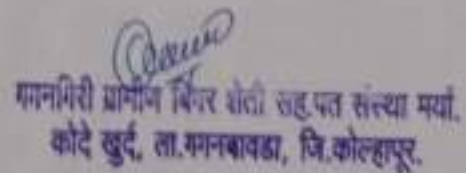 गगनगिरी ग्रामीण बिगर शेती सह.पत संस्था मर्या.
कोदे खुर्द, ता.गगनबावडा, जि.कोल्हापूर.